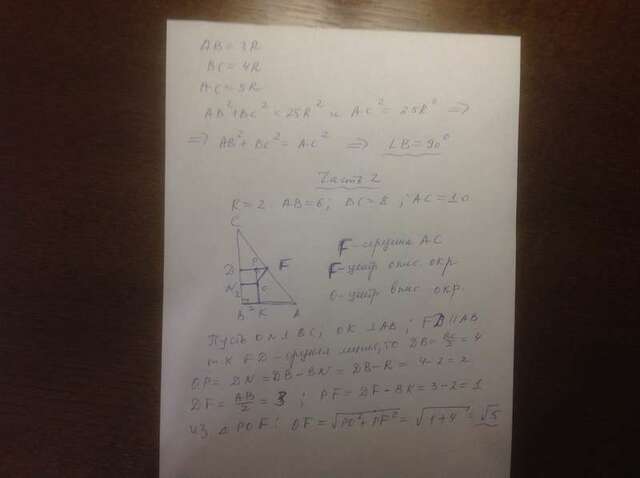 AB = 3R
BC = 4R
AC = 5R
AB² + BC² = 25R² и AC² = 25R² ⇒
⇒ AB² + BC² = AC² ⇒ ∠B = 90°
Часть 2
R = 2 AB = 6; BC = 8; AC = 10
C
D P F
N O
2
B 2 K A
F - середина AC
F - центр опис. окр.
O - центр впис. окр.
Пусть ON ⊥ BC; OK ⊥ AB; FD ∥ AB
т.к FD - средняя линия, то DB = BC/2 = 4
OP = DN = DB - BN = DB - R = 4 - 2 = 2
DF = AB/2 = 3; PF = DF - BK = 3 - 2 = 1
из △ POF: OF = √PO² + PF² = √1+4 = √5